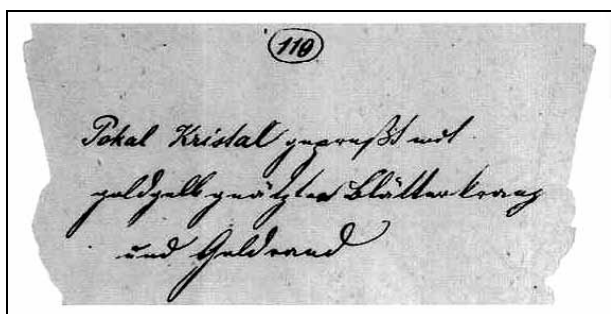 110
Pokal Kristal gepreßt mit
goldgelb geätzter Blätterkranz
und Goldrand